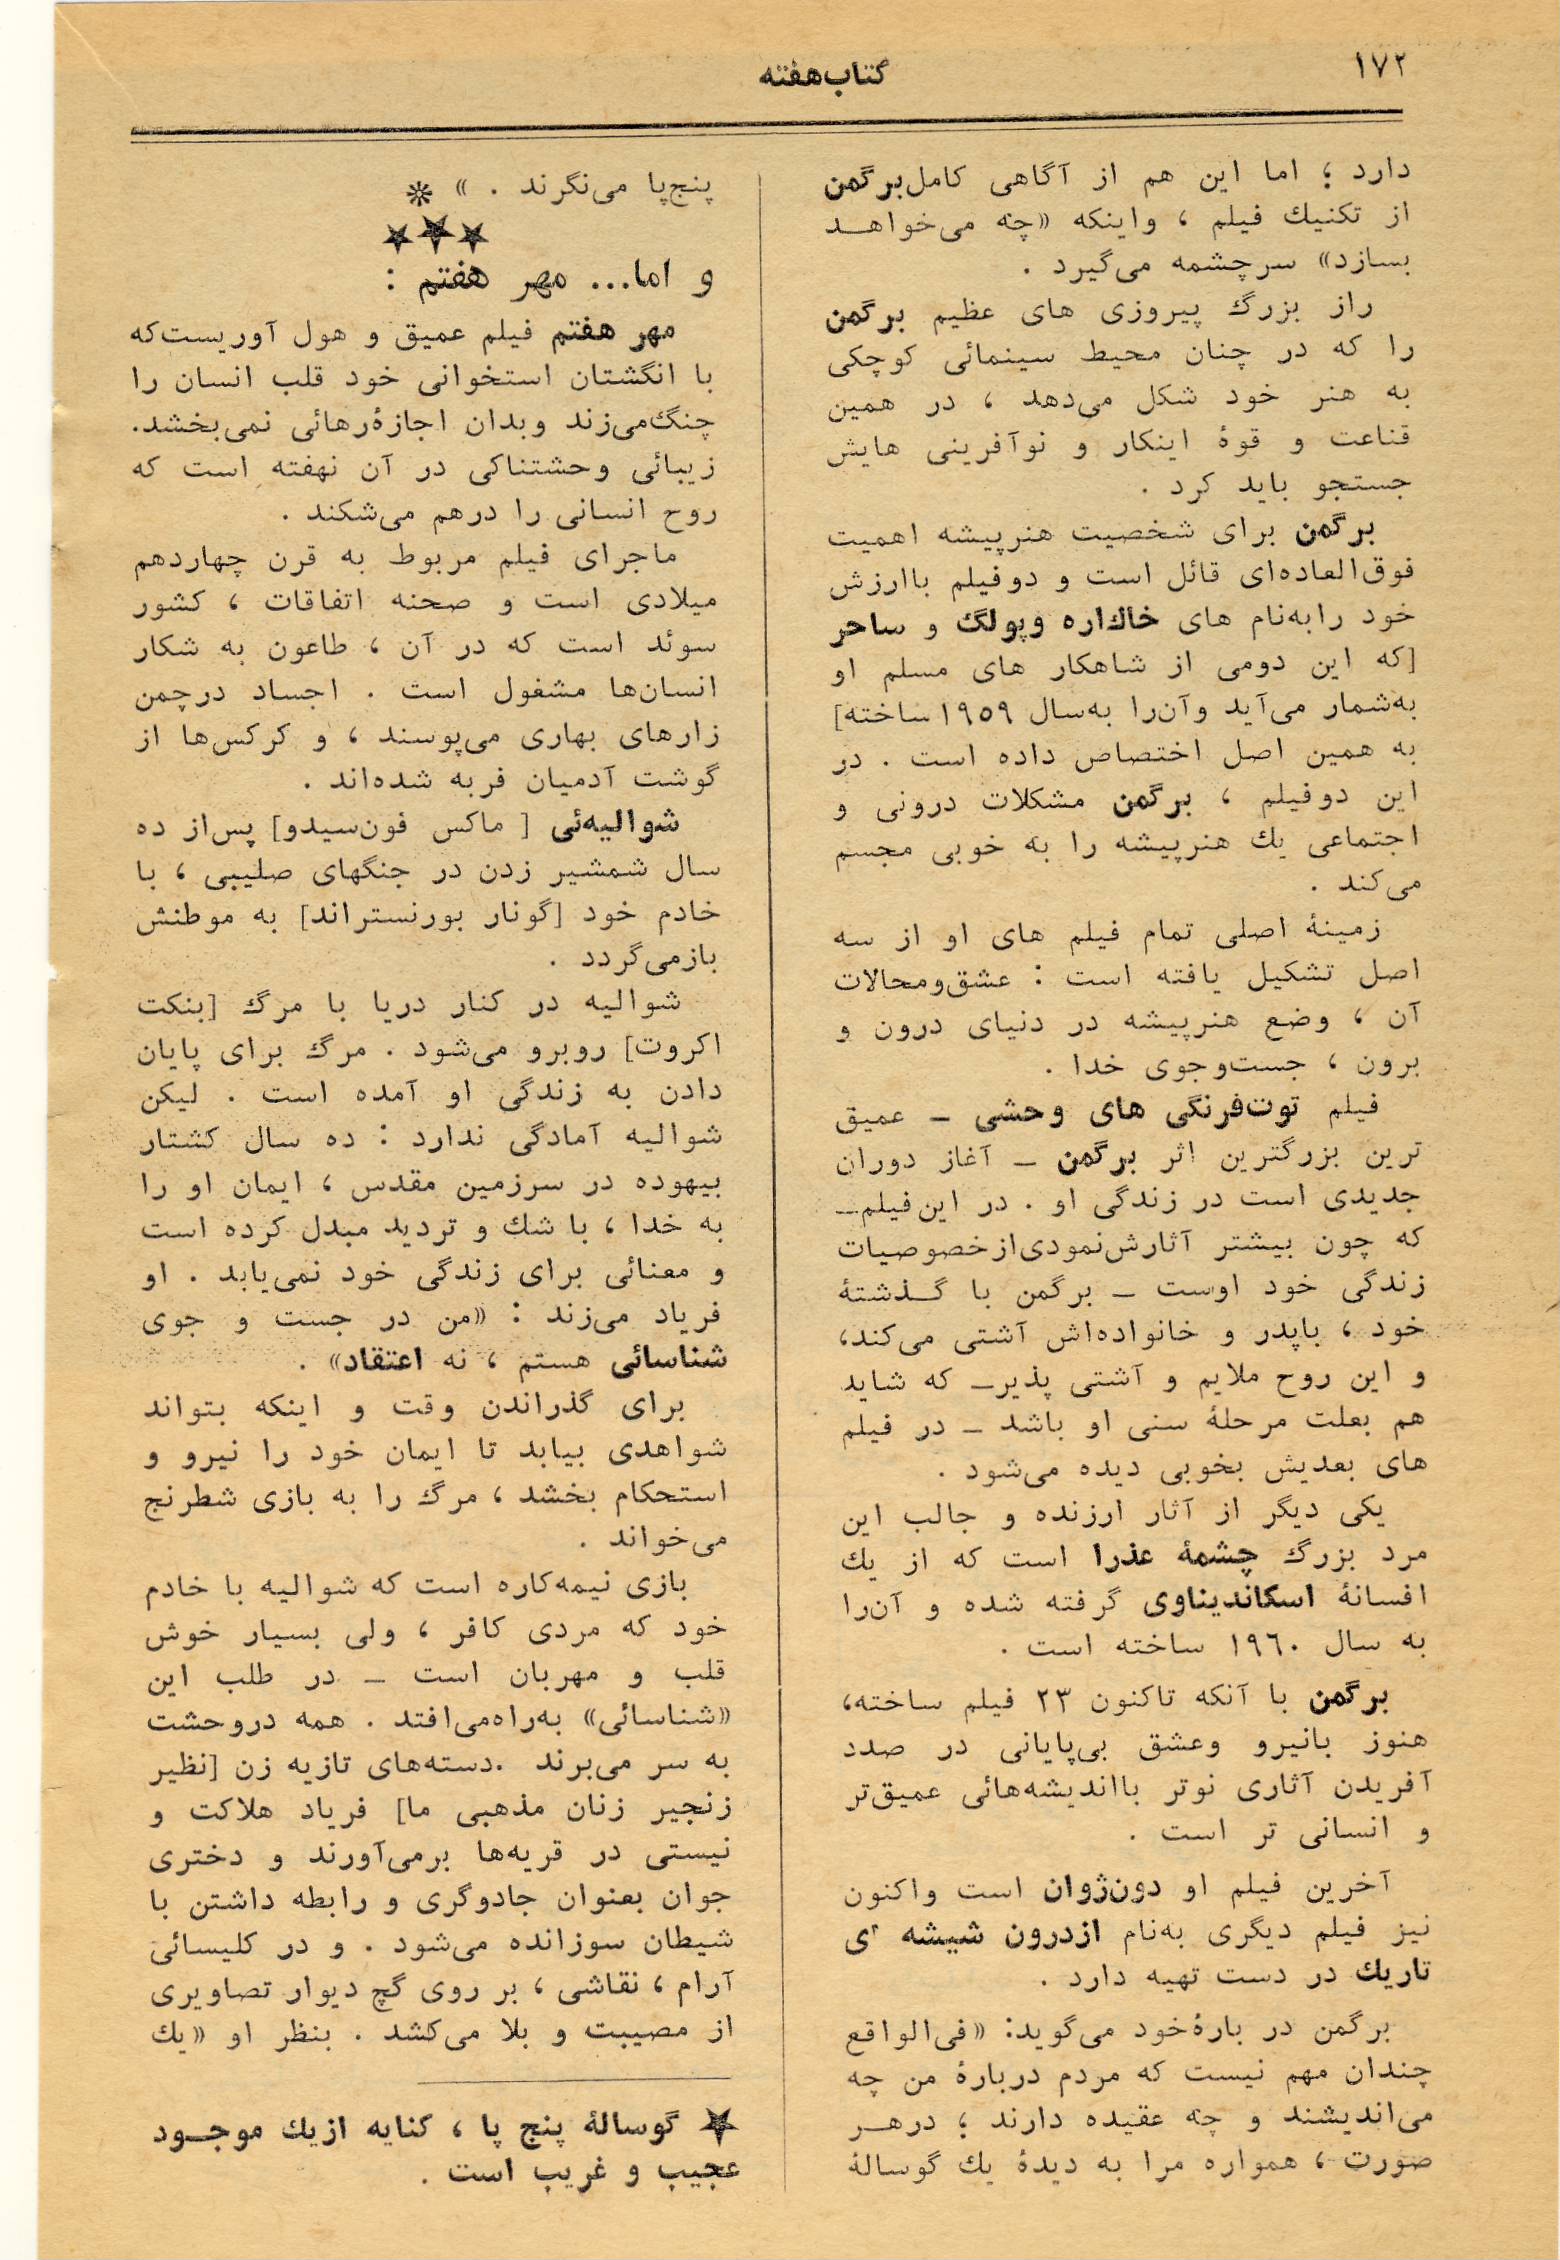 ۱۷۲
کتاب‌هفته
دارد ؛ اما این هم از آگاهی کامل برگمن
از تکنیك فیلم ، واینکه «چه می‌خواهــد
بسازد» سرچشمه می‌گیرد .
راز بزرگ پیروزی های عظیم برگمن
را که در چنان محیط سینمائی کوچکی
به هنر خود شکل می‌دهد ، در همین
قناعت و قوهٔ اینکار و نوآفرینی هایش
جستجو باید کرد .
برگمن برای شخصیت هنرپیشه اهمیت
فوق‌العاده‌ای قائل است و دوفیلم باارزش
خود را به‌نام های خاك‌اره وپولگ و ساحر
[که این دومی از شاهکار های مسلم او
به‌شمار می‌آید وآن‌را به‌سال ۱۹۵۹ ساخته]
به همین اصل اختصاص داده است . در
این دوفیلم ، برگمن مشکلات درونی و
اجتماعی یك هنرپیشه را به خوبی مجسم
می‌کند .
زمینهٔ اصلی تمام فیلم های او از سه
اصل تشکیل یافته است : عشق‌ومحالات
آن ، وضع هنرپیشه در دنیای درون و
برون ، جست‌وجوی خدا .
فیلم توت‌فرنگی های وحشی ـ عمیق
ترین بزرگترین اثر برگمن ـ آغاز دوران
جدیدی است در زندگی او . در این‌فیلم‌ـ
که چون بیشتر آثارش‌نمودی‌ازخصوصیات
زندگی خود اوست ـ برگمن با گــذشتهٔ
خود ، باپدر و خانواده‌اش آشتی می‌کند،
و این روح ملایم و آشتی پذیرـ که شاید
هم بعلت مرحلهٔ سنی او باشد ـ در فیلم
های بعدیش بخوبی دیده می‌شود .
یکی دیگر از آثار ارزنده و جالب این
مرد بزرگ چشمهٔ عذرا است که از یك
افسانهٔ اسکاندیناوی گرفته شده و آن‌را
به سال ۱۹۶۰ ساخته است .
برگمن با آنکه تاکنون ۲۳ فیلم ساخته،
هنوز بانیرو وعشق بی‌پایانی در صدد
آفریدن آثاری نوتر بااندیشه‌هائی عمیق‌تر
و انسانی تر است .
آخرین فیلم او دون‌ژوان است واکنون
نیز فیلم دیگری به‌نام ازدرون شیشه ای
تاریك در دست تهیه دارد .
برگمن در بارهٔ خود می‌گوید: «فی‌الواقع
چندان مهم نیست که مردم دربارهٔ من چه
می‌اندیشند و چه عقیده دارند ؛ درهــر
صورت ، همواره مرا به دیدهٔ یك گوسالهٔ
پنج‌پا می‌نگرند . » *
★★★
و اما... مهر هفتم :
مهر هفتم فیلم عمیق و هول آوریست‌که
با انگشتان استخوانی خود قلب انسان را
چنگ‌می‌زند وبدان اجازهٔ‌رهائی نمی‌بخشد.
زیبائی وحشتناکی در آن نهفته است که
روح انسانی را درهم می‌شکند .
ماجرای فیلم مربوط به قرن چهاردهم
میلادی است و صحنه اتفاقات ، کشور
سوئد است که در آن ، طاعون به شکار
انسان‌ها مشغول است . اجساد درچمن
زارهای بهاری می‌پوسند ، و کرکس‌ها از
گوشت آدمیان فربه شده‌اند .
شوالیه‌ئی [ ماکس فون‌سیدو] پس‌از ده
سال شمشیر زدن در جنگهای صلیبی ، با
خادم خود [گونار بورنستراند] به موطنش
بازمی‌گردد .
شوالیه در کنار دریا با مرگ [بنکت
اکروت] روبرو می‌شود . مرگ برای پایان
دادن به زندگی او آمده است . لیکن
شوالیه آمادگی ندارد : ده سال کشتار
بیهوده در سرزمین مقدس ، ایمان او را
به خدا ، با شك و تردید مبدل کرده است
و معنائی برای زندگی خود نمی‌یابد . او
فریاد می‌زند : «من در جست و جوی
شناسائی هستم ، نه اعتقاد» .
برای گذراندن وقت و اینکه بتواند
شواهدی بیابد تا ایمان خود را نیرو و
استحکام بخشد ، مرگ را به بازی شطرنج
می‌خواند .
بازی نیمه‌کاره است که شوالیه با خادم
خود که مردی کافر ، ولی بسیار خوش
قلب و مهربان است ـ در طلب این
«شناسائی» به‌راه‌می‌افتد . همه دروحشت
به سر می‌برند .دسته‌های تازیه زن [نظیر
زنجیر زنان مذهبی ما] فریاد هلاکت و
نیستی در قریه‌ها برمی‌آورند و دختری
جوان بعنوان جادوگری و رابطه داشتن با
شیطان سوزانده می‌شود . و در کلیسائی
آرام ، نقاشی ، بر روی گچ دیوار تصاویری
از مصیبت و بلا می‌کشد . بنظر او «یك
★ گوسالهٔ پنج پا ، کنایه ازیك موجــود
عجیب و غریب است .